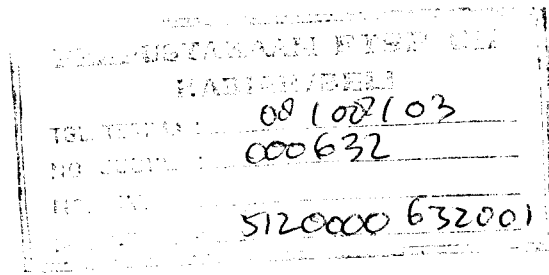 PERPUSTAKAAN FTSP UII
HADIAH/BELI
TGL. TERIMA : 08/08/03
NO. JUDUL : 000632
NO.
5120000632001